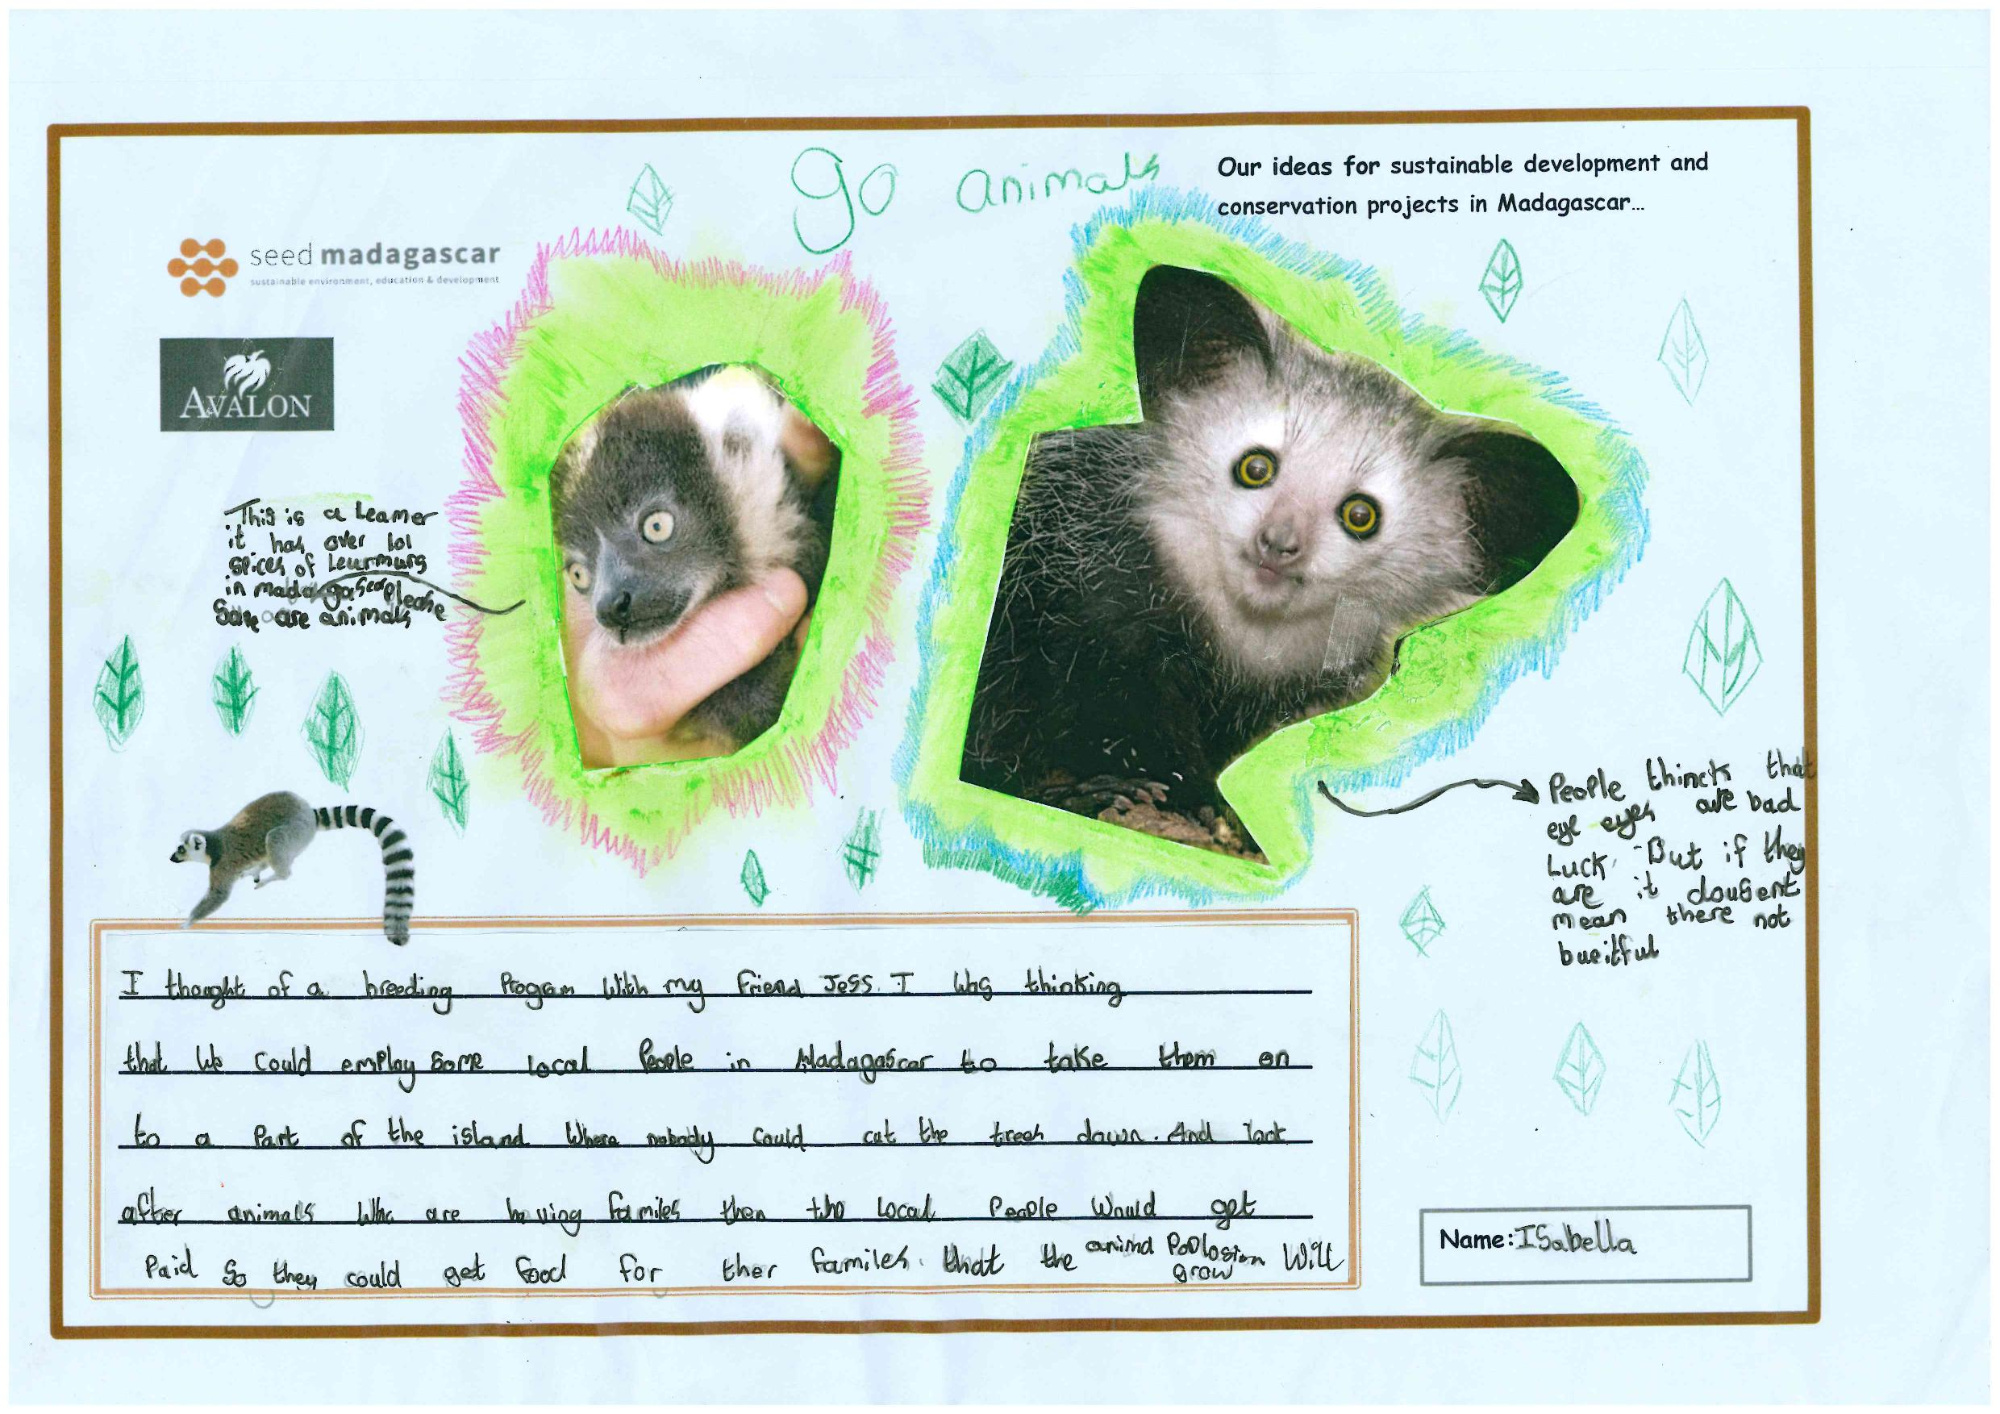 go animals
Our ideas for sustainable development and
conservation projects in Madagascar...
seed madagascar
sustainable environment, education & development
AVALON
This is a Leamer
it has over 101
spices of Leurmurs
in madagascar Please
Save are animals
People thinck that
eye eyes are bad
Luck. But if they
are it dousent
mean there not
bueitful
I thought of a breeding Program With my friend Jess. I was thinking
that we could employ some local People in Madagascar to take them on
to a Part of the island Where nobody could cut the trees down. And look
after animals who are having familes then the local People would get
Paid so they could get food for ther familes. that the animal Poplosion Will
grow
Name: ISabella